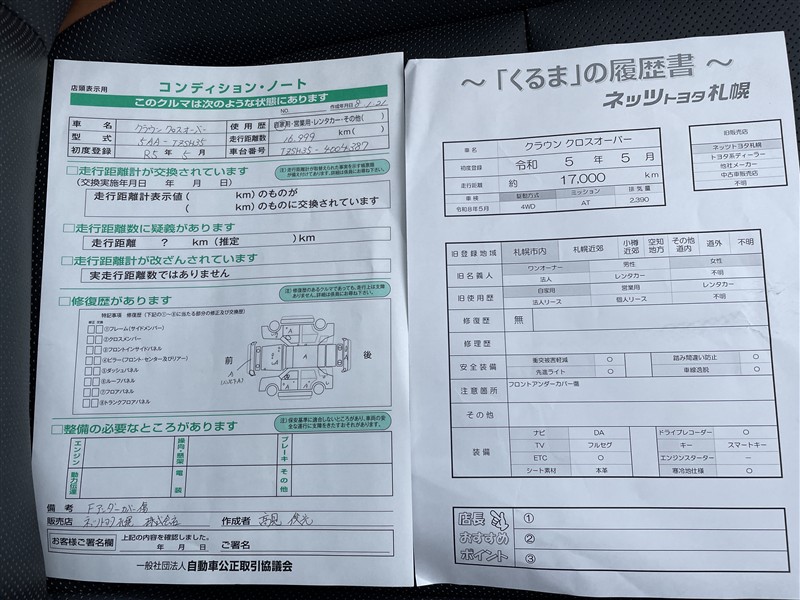 店頭表示用
コンディション・ノート
このクルマは次のような状態にあります
作成年月日 8.1.21
NO.
車名 クラウン クロスオーバー 使用歴 自家用・営業用・レンタカー・その他( )
型式 5AA-TZSH35 走行距離数 16,999 km( )
初度登録 R5年5月 車台番号 TZSH35-4004387
□走行距離計が交換されています
(交換実施年月日 年 月 日)
走行距離計表示値( km)のものが
( km)のものに交換されています
□走行距離数に疑義があります
走行距離 ? km(推定 )km
□走行距離計が改ざんされています
実走行距離数ではありません
□修復歴があります
特記事項 修復歴(下記の①~⑧に当たる部分の修正及び交換歴)
修正 交換
①フレーム(サイドメンバー)
②クロスメンバー
③フロントインサイドパネル
④ピラー(フロント・センター及びリアー)
⑤ダッシュパネル
⑥ルーフパネル
⑦フロアパネル
⑧トランクフロアパネル
前
後
A
□整備の必要なところがあります
エンジン
操向・懸架
ブレーキ
動力伝達
電装
その他
備考 Fアンダーカバー傷
販売店 ネッツトヨタ札幌 株式会社 作成者
お客様ご署名欄 上記の内容を確認しました。
年 月 日 ご署名
一般社団法人 自動車公正取引協議会
~「くるま」の履歴書~
ネッツトヨタ札幌
車名 クラウン クロスオーバー
初度登録 令和 5 年 5 月
走行距離 約 17,000 km
車検 駆動方式 ミッション 排気量
令和8年5月 4WD AT 2,390
旧販売店
ネッツトヨタ札幌
トヨタ系ディーラー
他社メーカー
中古車販売店
不明
旧登録地域 札幌市内 札幌近郊 小樽近郊 空知地方 その他道内 道外 不明
旧名義人 ワンオーナー 男性 女性
法人 レンタカー 不明
旧使用歴 自家用 営業用 レンタカー
法人リース 個人リース 不明
修復歴 無
修理歴
安全装備 衝突被害軽減 ○ 踏み間違い防止 ○
先進ライト ○ 車線逸脱 ○
注意箇所 フロントアンダーカバー傷
その他
装備 ナビ DA ドライブレコーダー ○
TV フルセグ キー スマートキー
ETC ○ エンジンスターター -
シート素材 本革 寒冷地仕様 ○
店長
おすすめ
ポイント
①
②
③